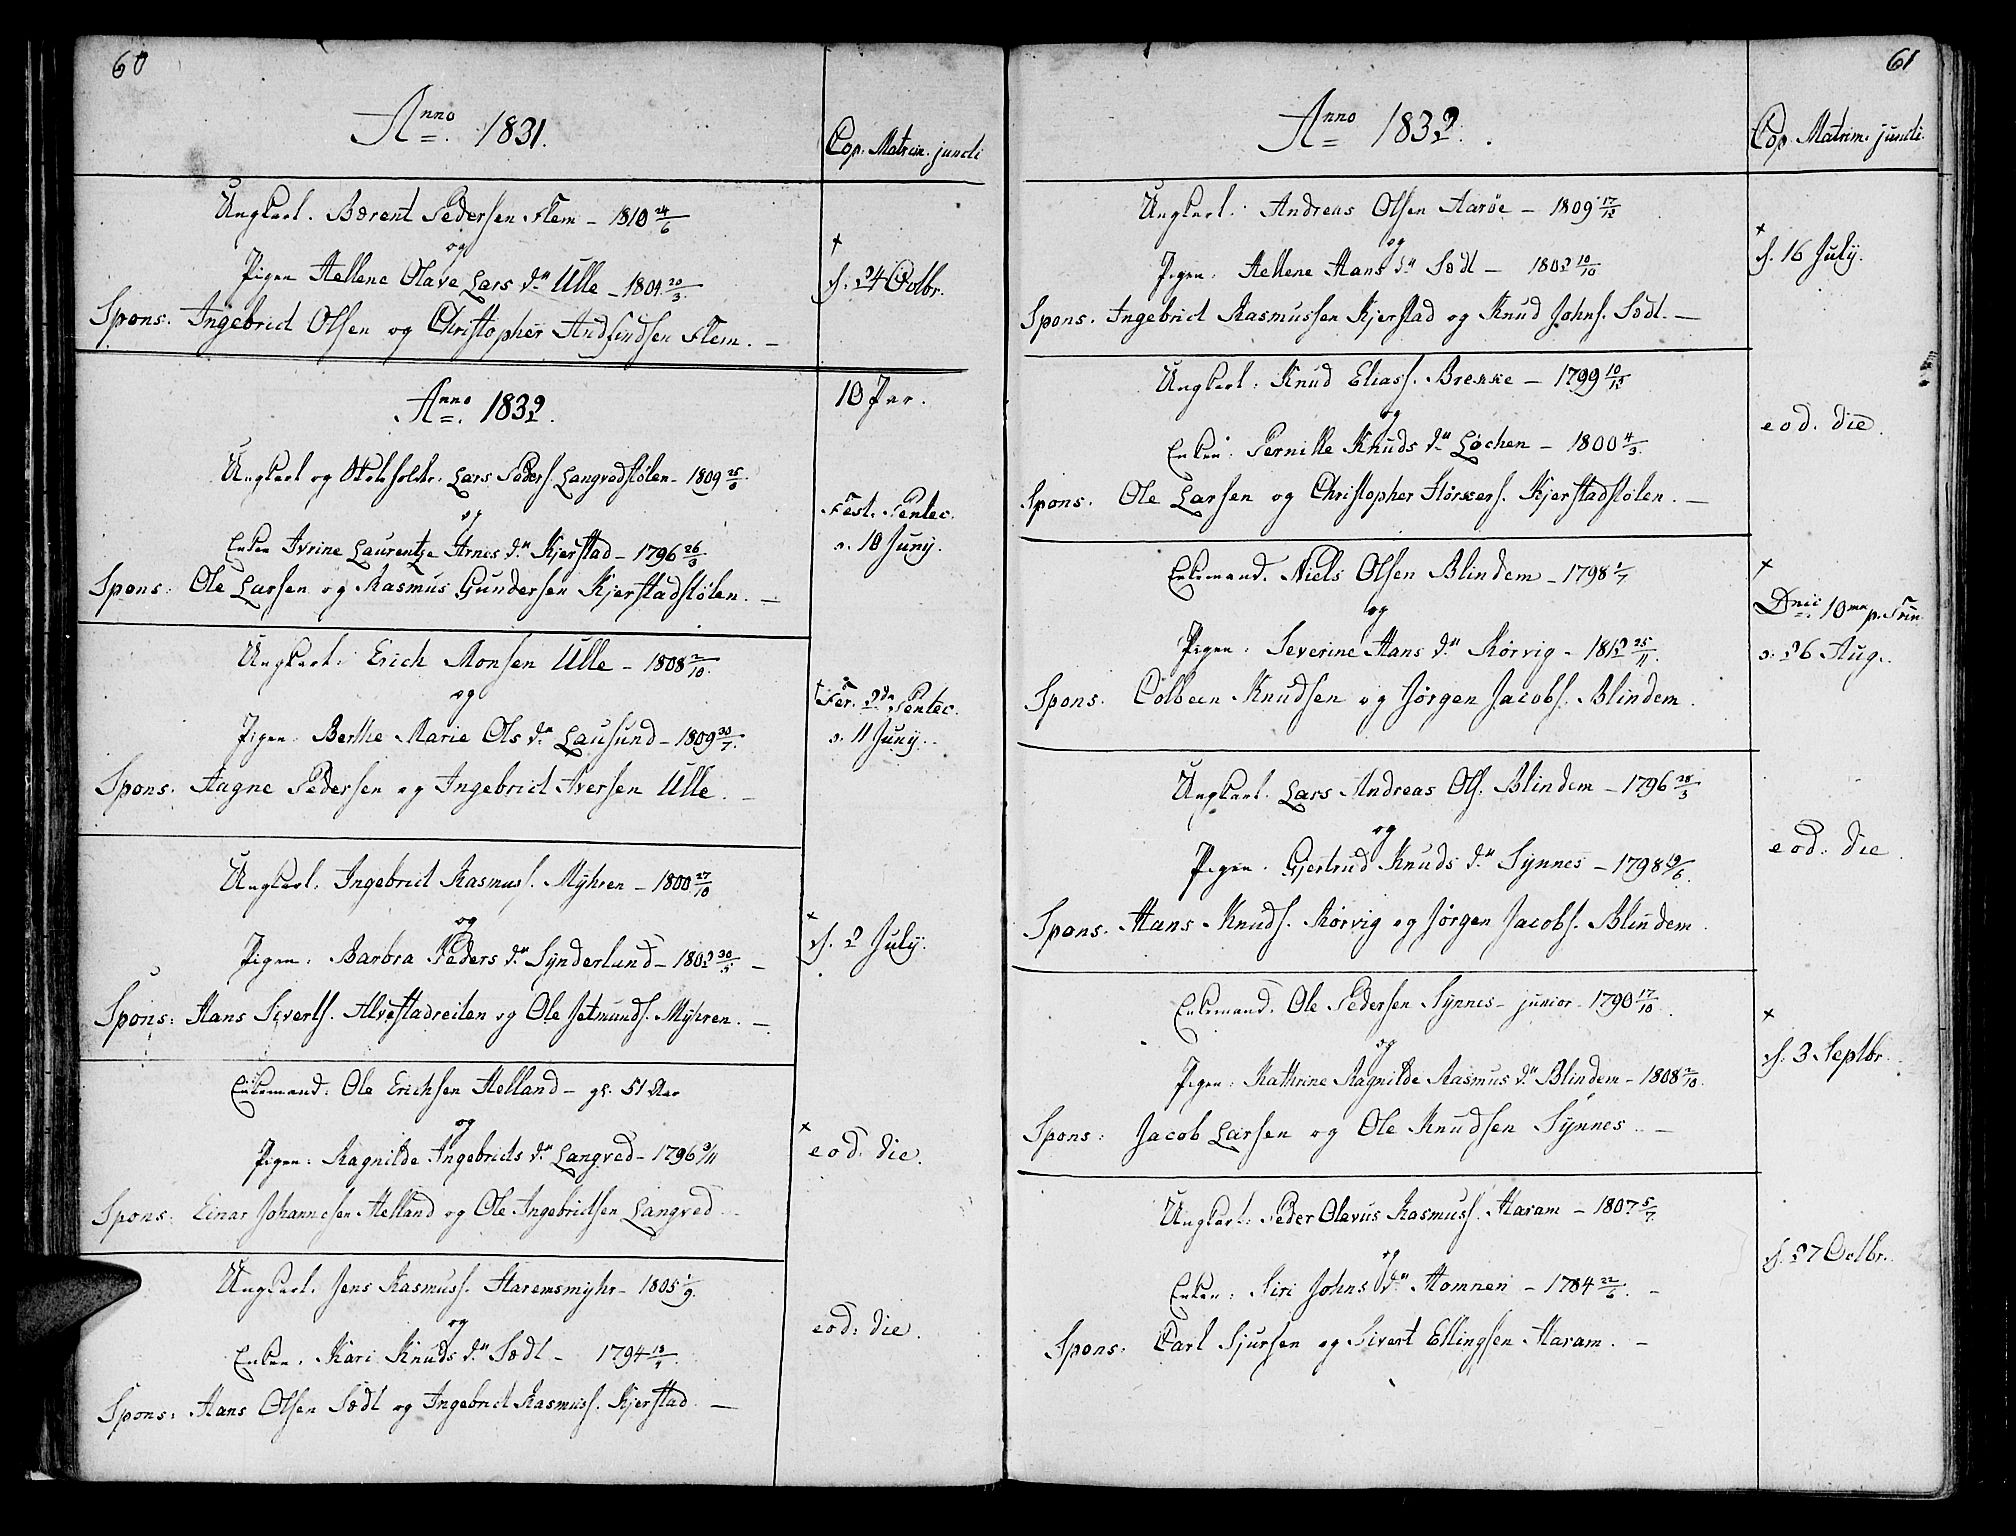 60
Anno 1831.
Cop. Matrim. juncti
Ungkarl. Bærent Pedersen Flem - 1810 24/6
og
Pigen Hellene Olave Lars d:r Ulle - 1804 20/3.
Spons. Ingebrict Olsen og Christopher Andfindsen Flem. -
+
d. 24 Octbr.
10 Par.
Anno 1832.
Ungkarl og Lars Peders. Langvedstølen - 1809 25/6
og
Enken Ivrine Laurentze Arnes d:r Kjerstad - 1796 26/3
Spons: Ole Larsen og Rasmus Gundersen Kjerstadstølen. -
Fest. Pentec.
s. 10 Juny.
Ungkarl: Erich Monsen Ulle - 1808 2/10.
og
Pigen: Berthe Marie Ols d:r Lausund - 1809 30/7.
Spons: Aagne Pedersen og Ingebrict Iversen Ulle. -
+
Fer. 2da Pentec.
s. 11 Juny.
Ungkarl. Ingebrict Rasmuss. Myhren - 1800 27/10
og
Pigen: Barbra Peders d:r Synderlund - 1802 30/5 -
Spons: Hans Sivertss. Alvestadreiten og Ole Jetmunds. Myhren. -
+
d. 2 July.
Enkemand: Ole Erichsen Helland - gl. 51 Aar
og
Pigen: Ragnilde Ingebricts d:r Langved - 1796 3/11
Spons: Einar Johannesen Helland og Ole Ingebrictsen Langved.
+
eod: die.
Ungkarl. Jens Rasmuss. Haremsmyhr - 1805 1/9.
og
Enken: Kari Knuds d:r Sødt - 1794
Spons: Hans Olsen Sødt og Ingebrict Rasmuss. Kjerstad. -
eod: die.
61
Anno 1832.
Cop. Matrim. juncti.
Ungkarl: Andreas Olsen Aarøe - 1809 17/12
og
Pigen: Hellene Hans d:r Sødt - 1802 10/10
Spons. Ingebrict Rasmussen Kjerstad og Knud Johns. Sødt. -
+
d. 16 July.
Ungkarl: Knud Eliass. Brekke - 1799 10/12
og
Enken: Pernille Knuds d:r Løchen - 1800 4/3.
Spons: Ole Larsen og Christopher Størkers. Kjerstadstølen. -
eod. die.
Enkemand. Niels Olsen Blindem - 1798 1/7
og
Pigen: Severine Hans d:r Rørvig - 1812 25/11.
Spons: Colbeen Knudsen og Jørgen Jacobs. Blindem.
+
Dnic 10ma p. Trin
s: 26 Aug.
Ungkarl. Lars Andreas Ols. Blindem - 1796 28/3
og
Pigen. Gjertrud Knuds d:r Synnes - 1798 19/6.
Spons. Hans Knuds. Rørvig og Jørgen Jacobs. Blindem.
eod: die.
Enkemand. Ole Pedersen Synnes - junior - 1790 17/10.
og
Pigen: Kathrine Ragnilde Rasmus d:r Blindem - 1808 2/10.
Spons: Jacob Larsen og Ole Knudsen Synnes. -
+
d. 3 Septbr.
Ungkarl: Peder Olavus Rasmuss. Haram - 1807 5/7.
og
Enken: Siri Johns d:r Homnen - 1784 22/6. -
Spons: Carl Sjursen og Sivert Ellingsen Haram. -
d. 27 Octbr.